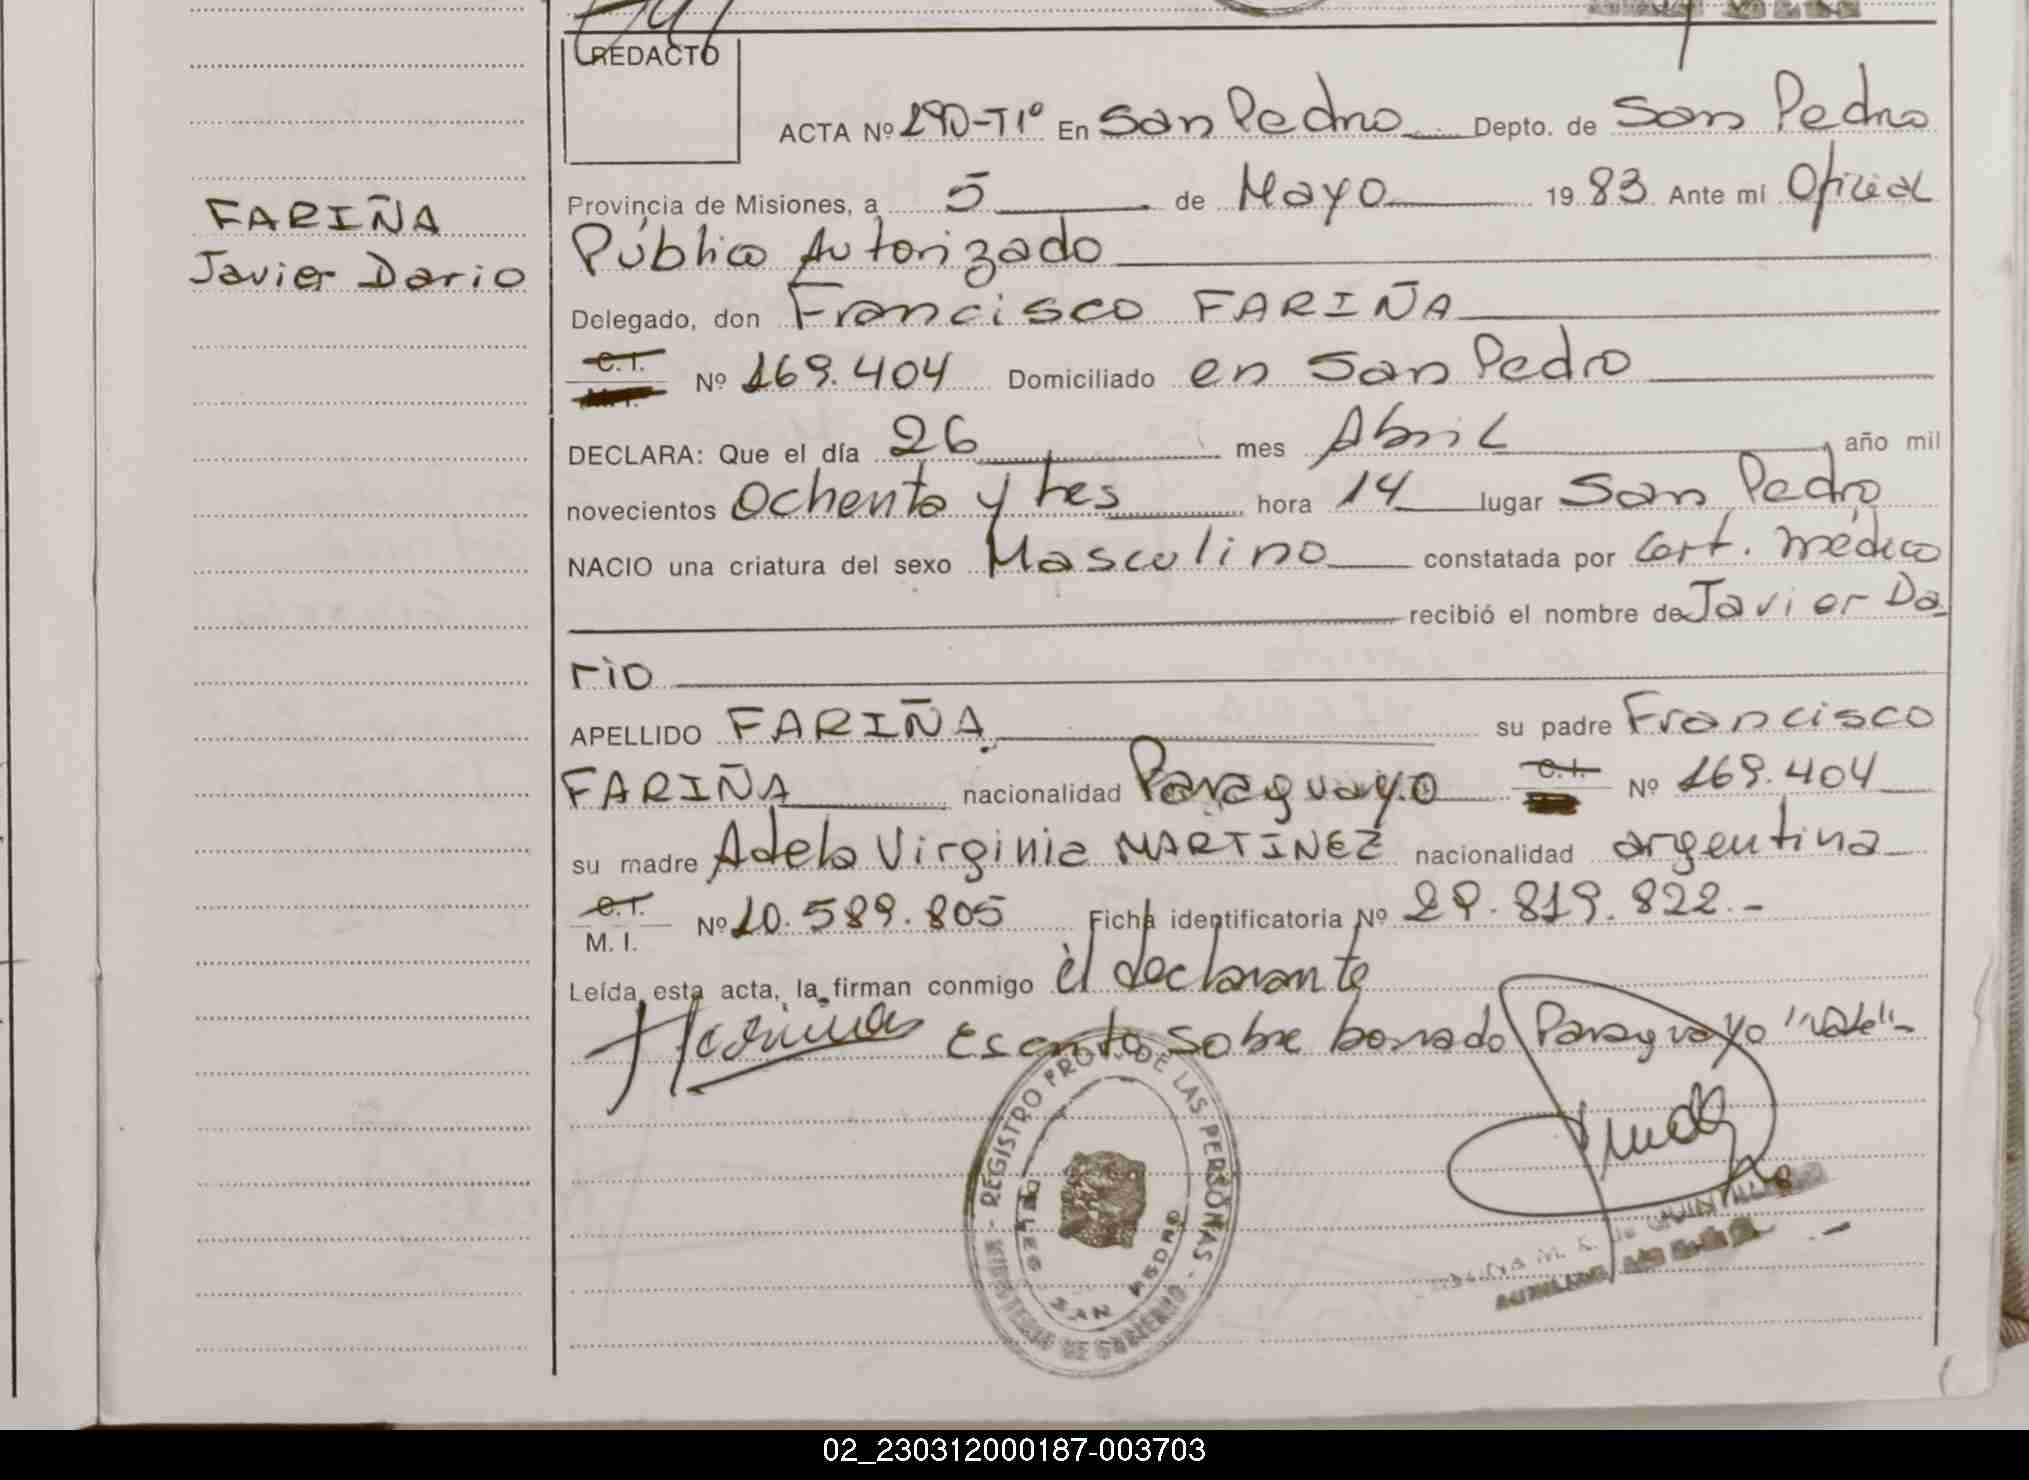 REDACTO
ACTA Nº 290-T1º En San Pedro Depto. de San Pedro
Provincia de Misiones, a 5 de Mayo 19 83 Ante mí Oficial
Público Autorizado
FARIÑA
Javier Dario
Delegado, don Francisco FARIÑA
C. I.
Nº 169.404 Domiciliado en San Pedro
DECLARA: Que el día 26 mes Abril año mil
novecientos Ochenta y tres hora 14 lugar San Pedro
NACIO una criatura del sexo Masculino constatada por Cert. médico
recibió el nombre de Javier Da-
rio
APELLIDO FARIÑA su padre Francisco
FARIÑA nacionalidad Paraguayo C. I. Nº 169.404
su madre Adela Virginia MARTINEZ nacionalidad argentina
C. I.
M. I. Nº 10.589.805 Ficha identificatoria Nº 29.819.822.-
Leída esta acta, la firman conmigo èl declarante
Escrito sobre borrado Paraguayo "vale"-
REGISTRO PROV. DE LAS PERSONAS
MINISTERIO DE GOBIERNO
SAN PEDRO
02_230312000187-003703